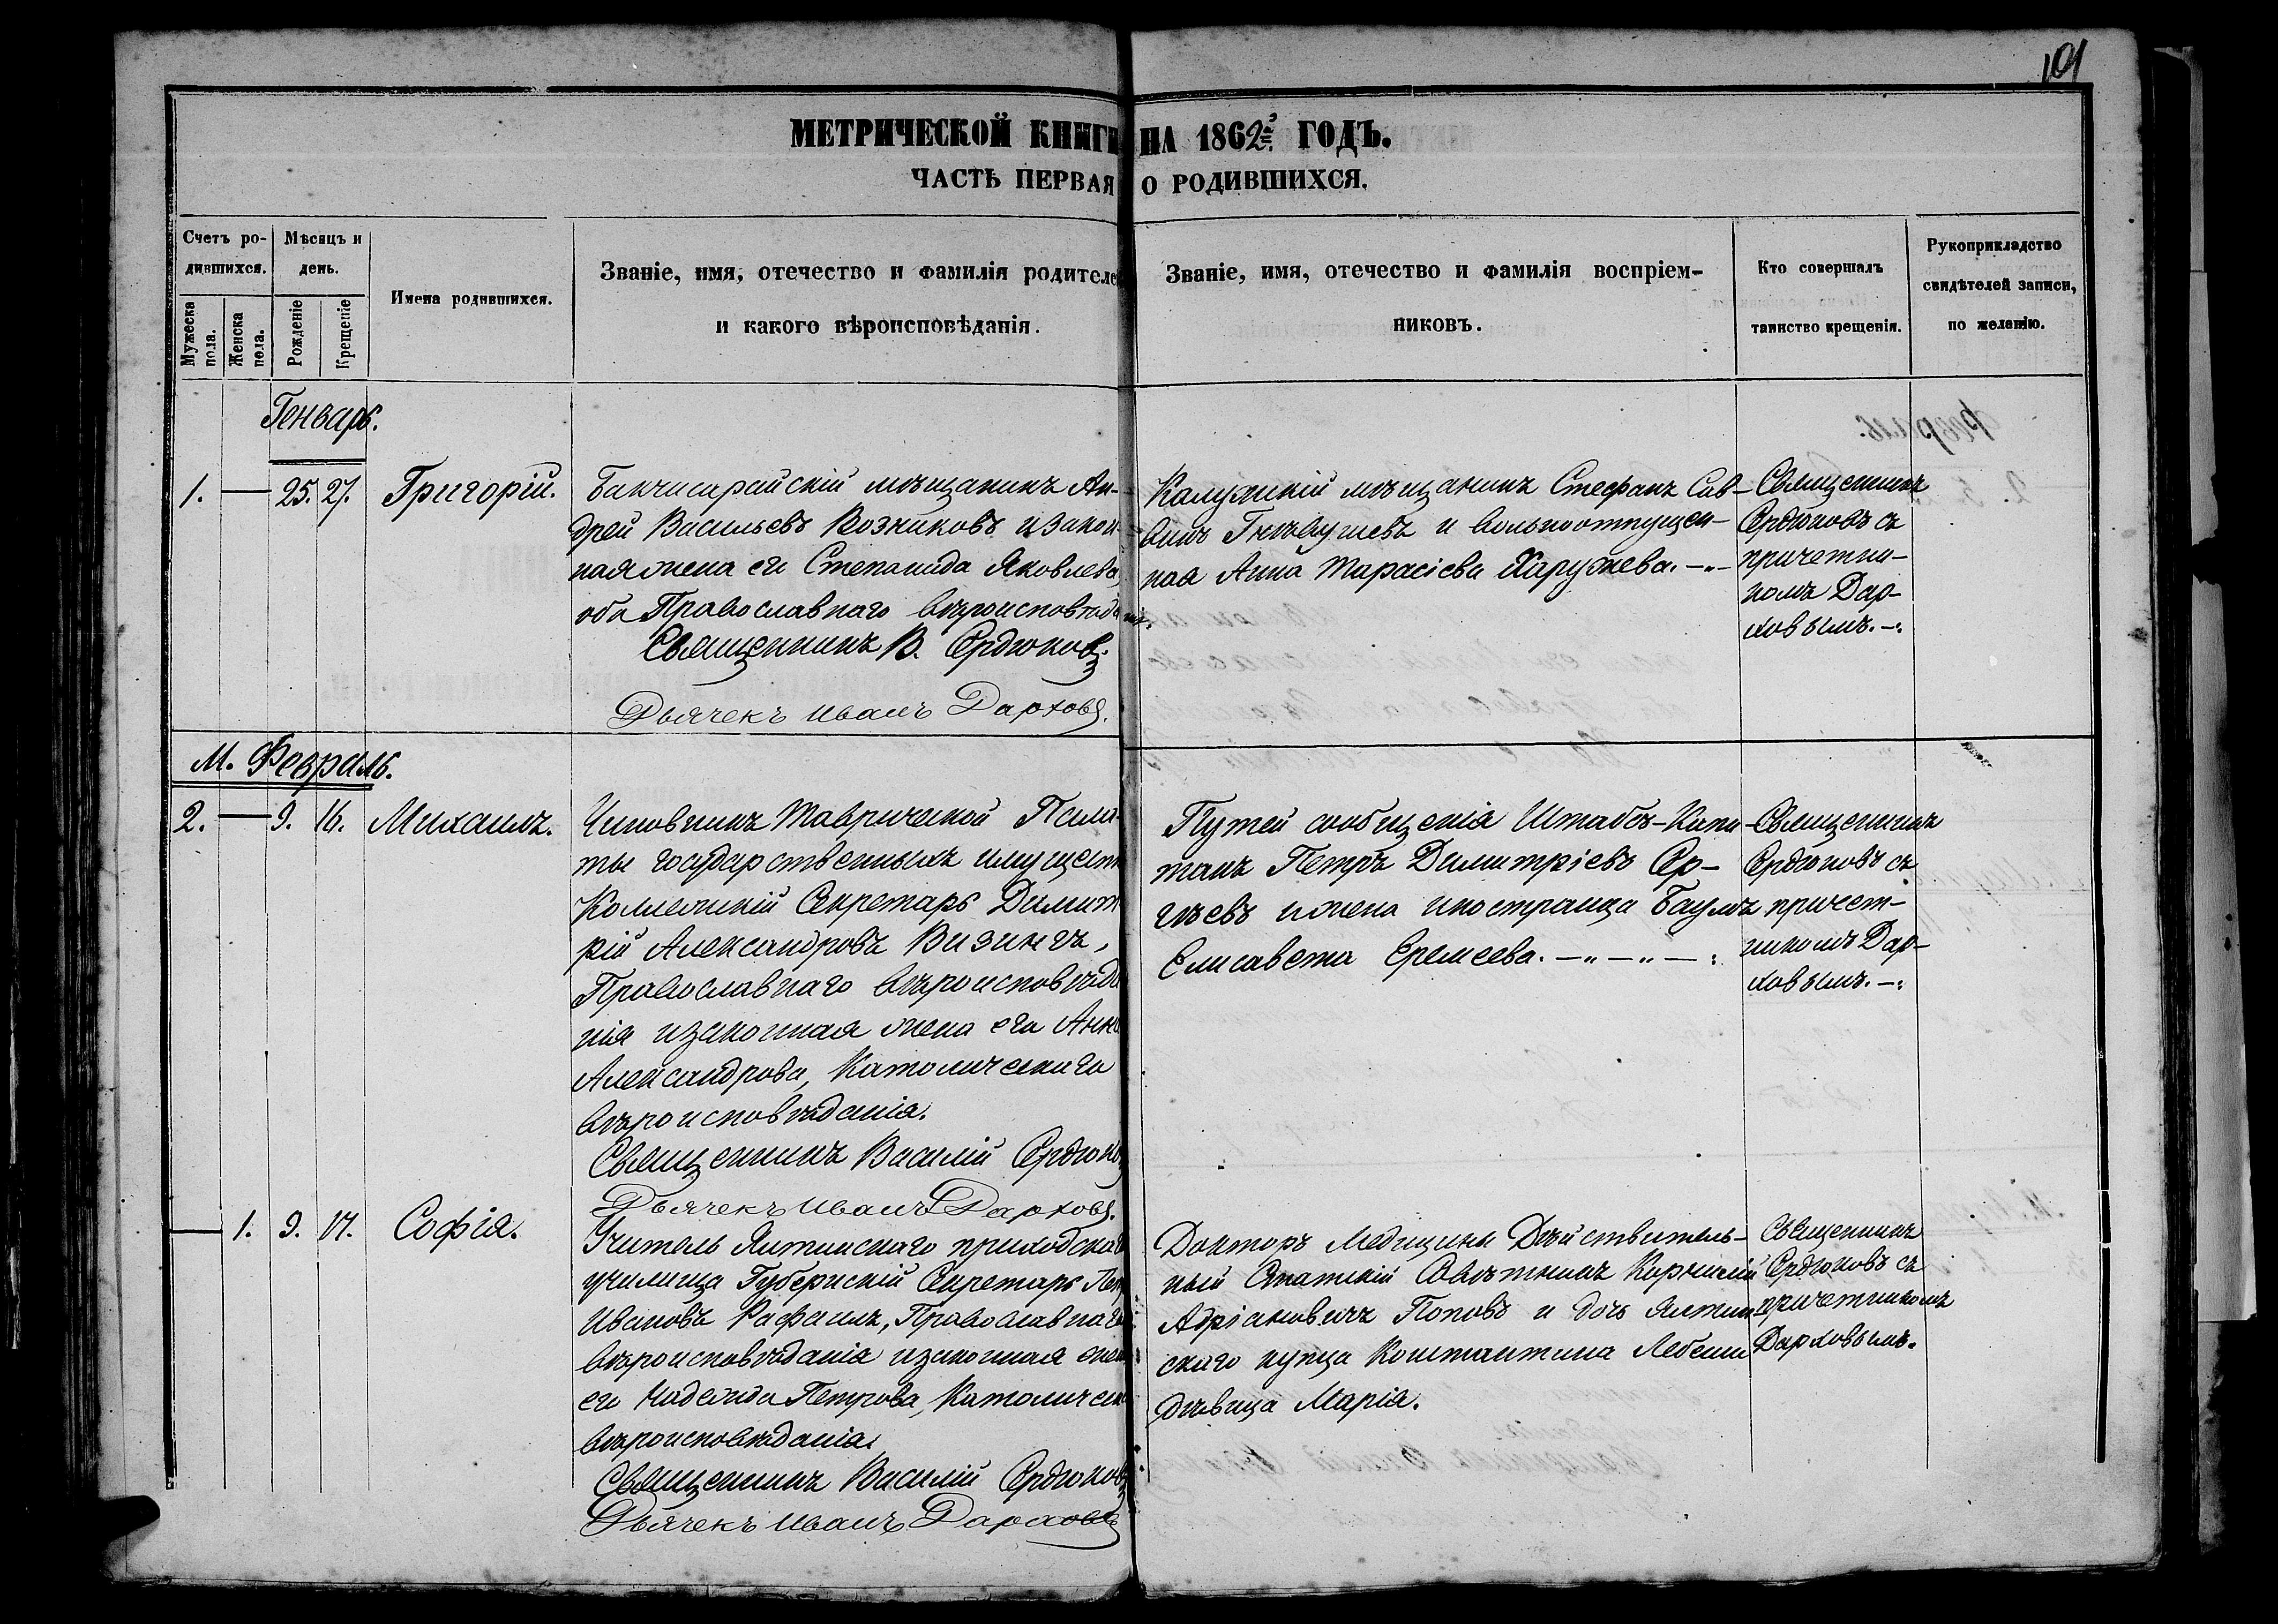 101
МЕТРИЧЕСКОЙ КНИГИ НА 1862й ГОДЪ.
ЧАСТЬ ПЕРВАЯ О РОДИВШИХСЯ.
Счетъ ро-
дившихся.
Мужеска
пола.
Женска
пола.
Мѣсяцъ и
день.
Рожденіе
Крещеніе
Имена родившихся.
Званіе, имя, отечество и фамилія родителе
и какого вѣроисповѣданія.
Званіе, имя, отечество и фамилія воспріем-
никовъ.
Кто совершалъ
таинство крещенія.
Рукоприкладство
свидѣтелей записи,
по желанію.
Генварь.
1. — 25. 27. Григорій.
Бакчисарайскій мѣщанинъ Ан-
дрей Васильевъ Возниковъ и закон-
ная жена его Степанида Яковлева,
оба Православнаго вѣроисповѣданія.
Священникъ В. Сердюковъ.
Дьячекъ Иванъ Дарховъ.
Калужскій мѣщанинъ Стефанъ Сав-
винъ и вольноотпущен-
ная Анна Тарасіева Харужева.
Священникъ
Сердюковъ съ
причетни-
комъ Дар-
ховымъ.
М. Февраль.
2. — 9. 16. Михаилъ.
Чиновникъ Таврической Пала-
ты государственныхъ имуществ
Коллежскій Секретарь Димит
рій Александровъ Визингъ,
Православнаго вѣроисповѣда
нія и законная жена его Анна
Александрова, Католическаго
вѣроисповѣданія.
Священникъ Василій Сердюковъ
Дьячекъ Иванъ Дарховъ.
Путей сообщенія Штабсъ-Капи-
танъ Петръ Димитріевъ Сер-
гѣевъ и жена иностранца Баумъ
Елисавета Еремеева.
Священникъ
Сердюковъ съ
причет-
никомъ Дар-
ховымъ.
— 1. 9. 17. Софія.
Учитель Ялтинскаго приходскаго
училища Губернскій Секретарь Петръ
Ивановъ Рафаилъ, Православнаго
вѣроисповѣданія и законная жена
его Надежда Петрова, Католическ
вѣроисповѣданія.
Священникъ Василій Сердюковъ
Дьячекъ Иванъ Дарховъ
Докторъ Медицины Дѣйствитель-
ный Статскій Совѣтникъ Корнилій
Адріановичъ Поповъ и дочь Ялтин
скаго купца Константина Лебеши
дѣвица Марія.
Священникъ
Сердюковъ съ
причетникомъ
Дарховымъ.